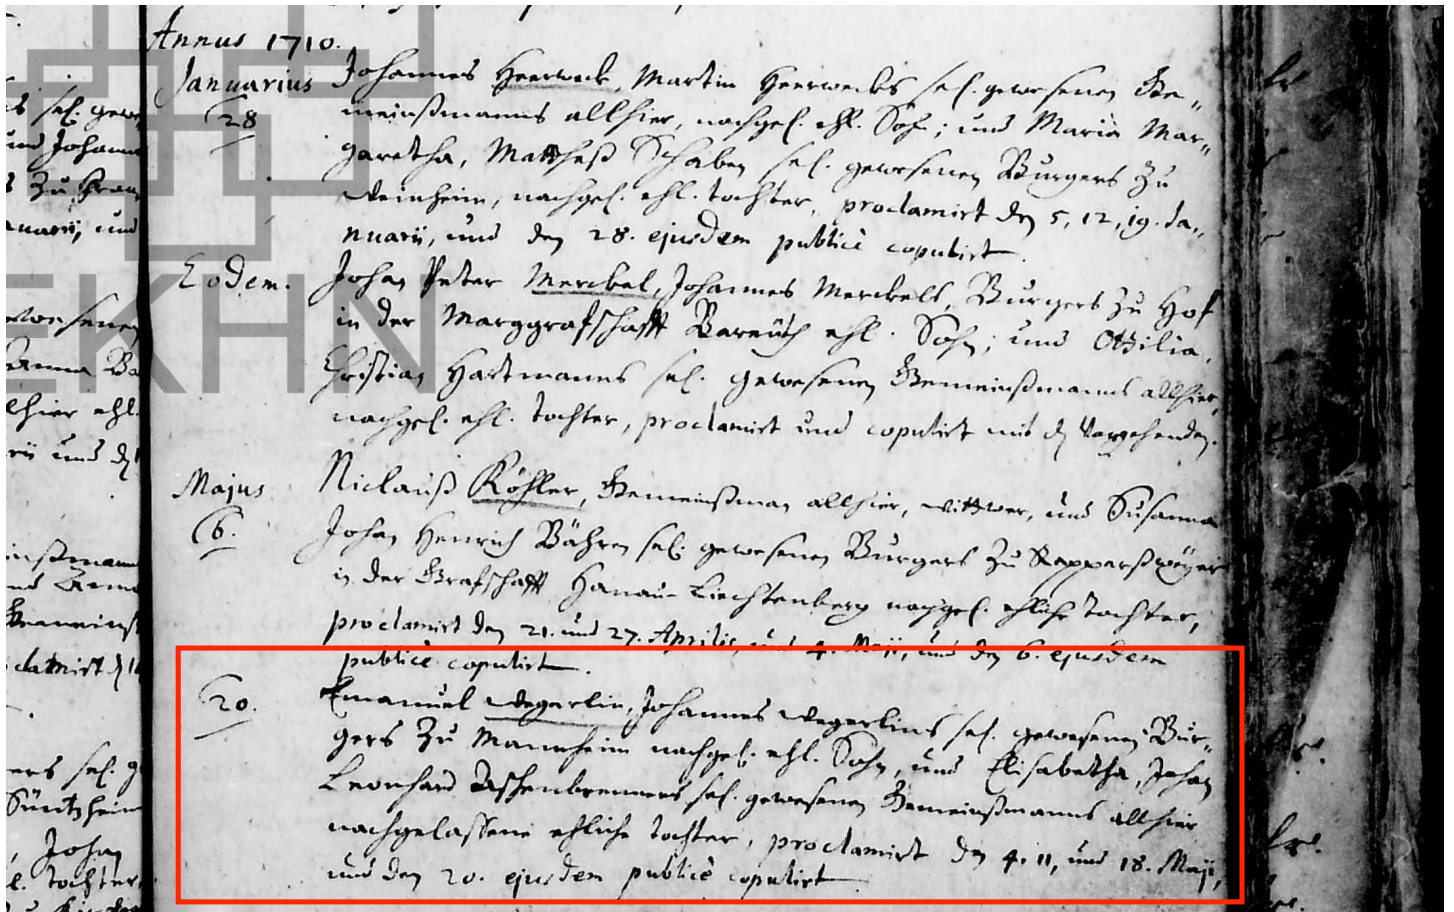 Annus 1710.
Januarius Johannes Heerweck, Martin Heerwecks sel. gewesenen Ge-,,
28 meinßmanns allhier, nachgel. ehl. Sohn; und Maria Mar-,,
garetha, Mattheß Schaben sel. gewesenen Burgers zu
Weinheim, nachgel. ehl. Tochter, proclamirt den 5, 12, 19. Ja-,,
nuarii, und den 28. ejusdem publicè copulirt.
Eodem. Johan Peter Merckel, Johannes Merckels, Burgers zu Hof
in der Marggrafschafft Bareüth ehl. Sohn; und Ottilia,
Christian Hartmanns sel. gewesenen Gemeinßmanns allhier,
nachgel. ehl. Tochter, proclamirt und copulirt mit den Vorgehenden.
Majus Niclauß Köhler, Gemeinßman allhier, wittwer, und Susanna
6. Johan Henrich Bähren sel. gewesenen Burgers zu
in der Grafschafft Hanau-Liechtenberg nachgel. ehliche Tochter,
proclamirt den 21. und 27. Aprilis, und 4. Maji, und den 6. ejusdem
publicè copulirt.
20. Emanuel Wegerlin, Johannes Wegerlins sel. gewesenen Bur-,,
gers zu Mannheim nachgel. ehl. Sohn, und Elisabetha, Johan
Leonhard Aschenbrenners sel. gewesenen Gemeinßmanns allhier
nachgelassene ehliche Tochter, proclamirt den 4. 11, und 18. Maji,
und den 20. ejusdem publicè copulirt.
EKHN